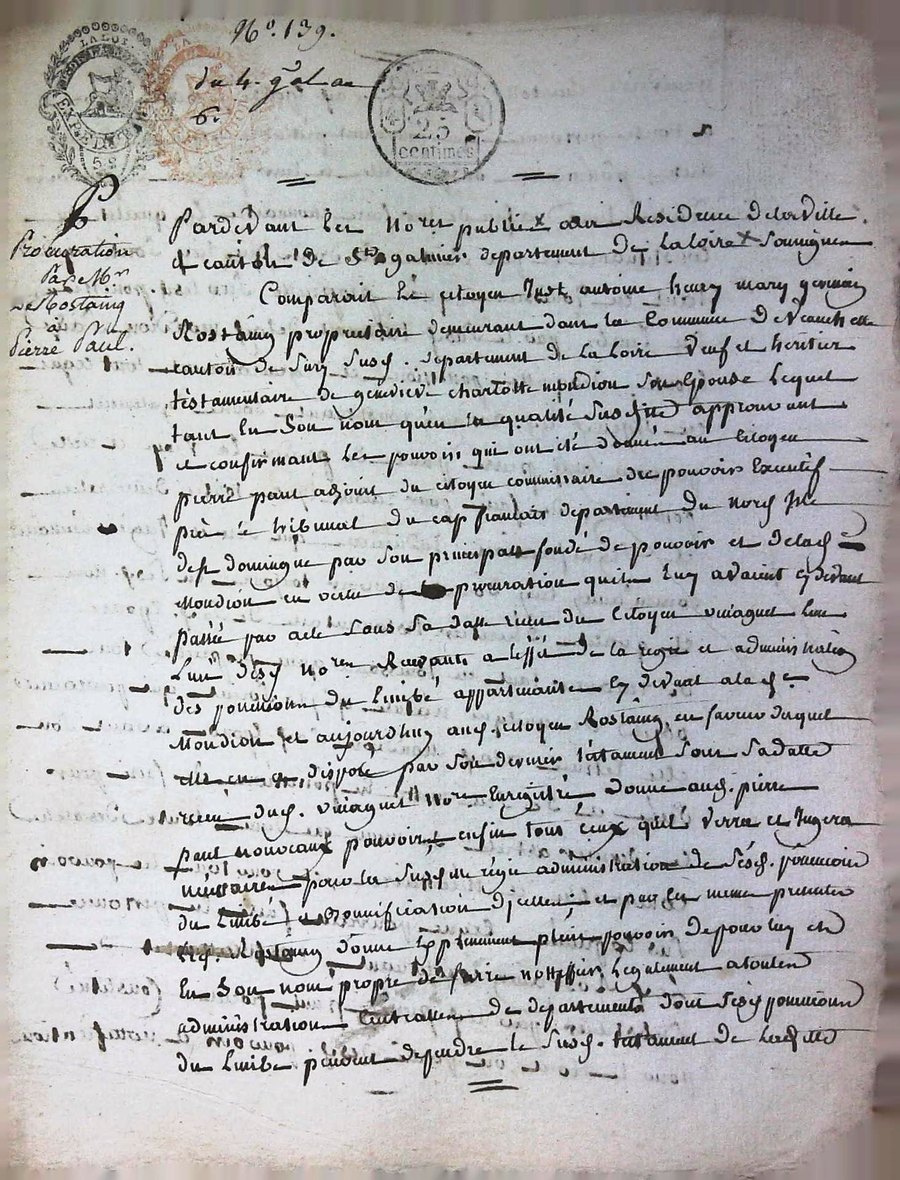 LA LOI
LA
25
centimes
5 S
5 S
N.º 139.
du 4. g.al an
6.
Procuration
Par M.r
de Rostaing
à
Pierre Paul.
Pardevant les Nores publix a la Résidence de la ville
et canton de St galmier departement de la loire soussignes
Comparait le citoyen Just antoine henry mary germain
Rostaing proprietaire demeurant dans la Commune de Veauchette
canton de Sury Susd. departement de la Loire Veuf et heritier
testamentaire de genevieve charlotte mondion son Epouse Lequel
tant En Son nom qu'en la qualité Susditte approuvant
et confirmant les pouvoirs qui ont été donné au Citoyen
pierre paul adjoint du citoyen commissaire du pouvoir Executif
près le tribunal du cap francais departement du nord Isle
de st domingue par son principal fondé de pouvoir et de lad.
Mondion en vertu de procuration qu'ils luy avaient cy devant
passée par acte sous sa datte recu du Citoyen
L'un desd. nores a l'effét de la regie et administration
des possessions du Limbé appartenantes cy devant a lad.
Mondion et aujourdhuy aud. Citoyen Rostaing en faveur duquel
elle en a disposé par son dernier téstament sous sa datte
recu dud. Nore Enregistré donne aud. pierre
paul nouveaux pouvoirs enfin tous ceux qu'il verra et Jugera
nécessaires pour la Susditte régie administration de Sésd. possessions
du Limbé et Bonnification d'icelles et par les meme presentes
led. Rostaing donne Expressement plein pouvoir de pour luy et
En Son nom propre de faire nottiffier Legalement a toutes
administrations Centralles de departements dont Sésd. possessions
du Limbé peuvent depandre le Susd. téstament de Laditte